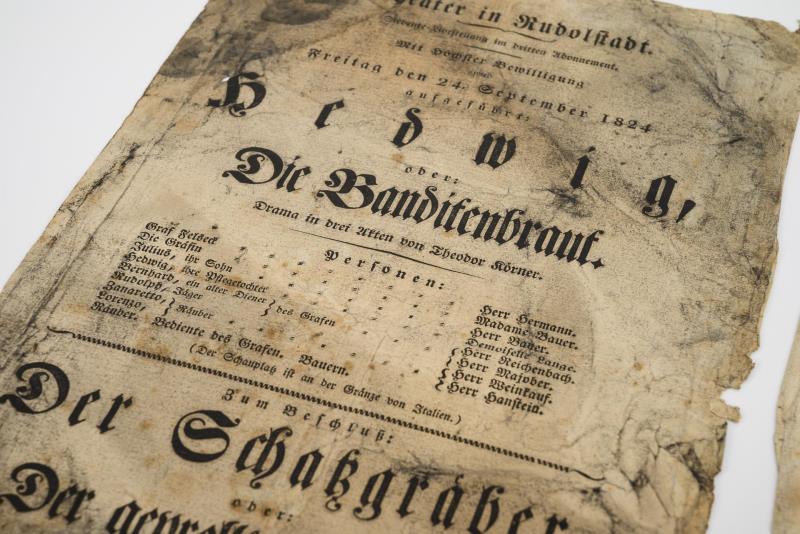 Theater in Rudolstadt.
Siebente Vorstellung im dritten Abonnement.
Mit Höchster Bewilligung
wird
Freitag den 24. September 1824
aufgeführt:
Hedwig,
oder:
Die Banditenbraut.
Drama in drei Akten von Theodor Körner.
Personen:
Graf Felseck Herr Hermann.
Die Gräfin Madame Bauer.
Julius, ihr Sohn Herr Bauer.
Hedwig, ihre Pflegetochter Demoiselle Lange.
Bernhard, ein alter Diener } des Grafen Herr Reichenbach.
Rudolph, Jäger
Zanaretto, } Räuber Herr Weinkauf.
Lorenzo, Herr Hanstein.
Räuber. Bediente des Grafen. Bauern.
(Der Schauplatz ist an der Gränze von Italien.)
Zum Beschluß:
Der Schatzgräber
oder:
Der